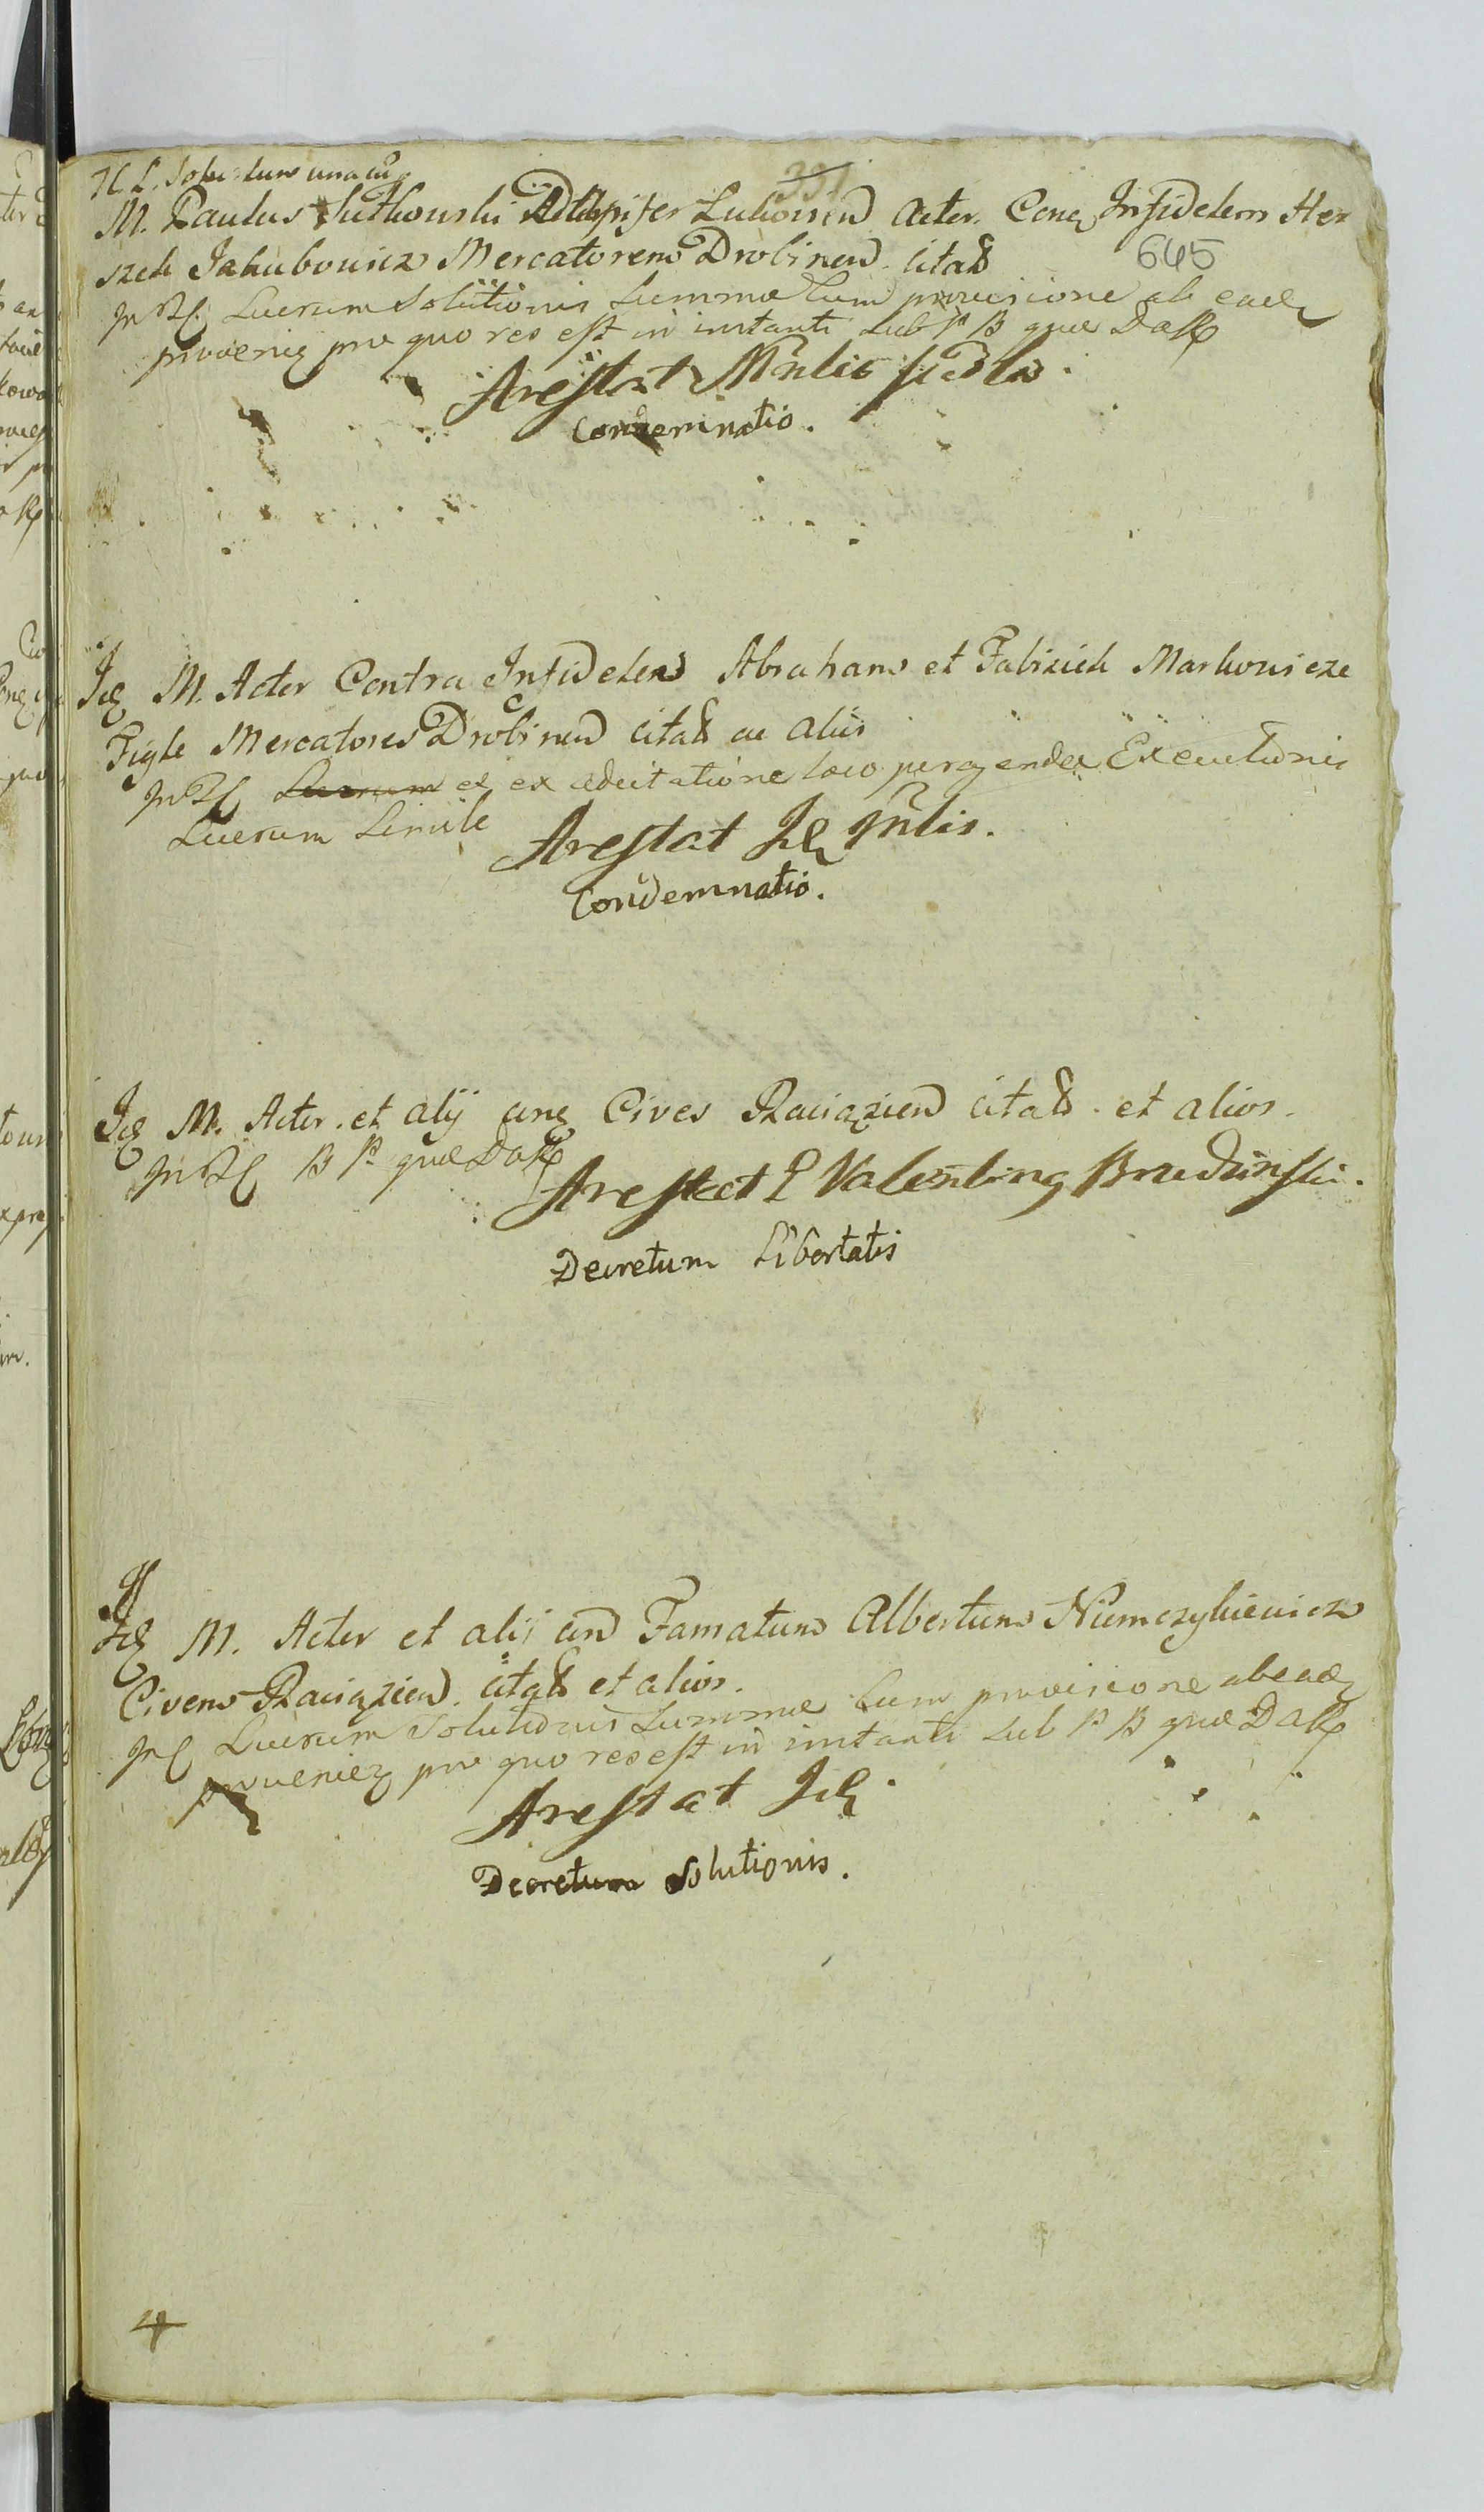 331
645
M. Paulus Sutkowski Actor. Conq Infidelem Her
szek Jakubowicz Mercatorem Drobinen. citat
In Rf. Luerum Solutionis Summae Cum provisione ab eadq
provenieq pro quo res est in instanti sub P B quae
Arestat Mnlis
Condemnatio.
Idq M. Actor Contra Infideles Abraham et Fabisich Markowicze
Figle Mercatores Drobinen citat ac alius
In Rf et ex adcitatione loco peragendae Executionis
Luerum Simile
Arestat Idq Mnlis.
Condemnatio.
Idq M. Actor. et alij cnq Cives Raciązien citat. et alios.
In Rf B P quae
Arestat P Valentinq Brudzinski.
Decretum Libertatis
Idq M. Actor et alij cn Famatum Albertum Niemczykiewicz
Civem Raciązien. citat et alios.
In f Luerum Solutionis Summae Cum provisione ab eadq
provenieq pro quo res est in instanti sub P B quae
Arestat Idq
Decretum Solutionis.
4